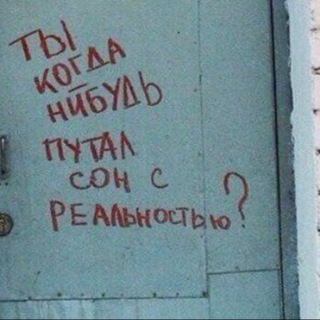 ТЫ
КОГДА
НИБУДЬ
ПУТАЛ
СОН С
РЕАЛЬНОСТЬЮ?